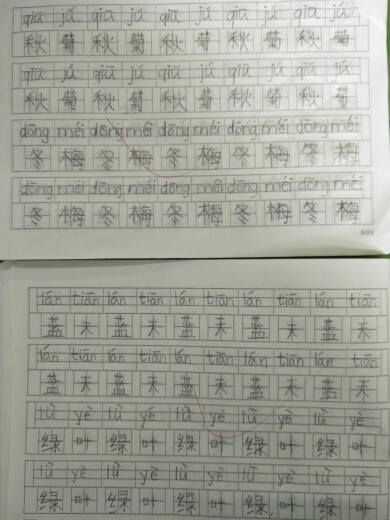 qiū jú qiū jú qiū jú qiū jú qiū jú
秋 菊 秋 菊 秋 菊 秋 菊 秋 菊
qiū jú qiū jú qiū jú qiū jú qiū jú
秋 菊 秋 菊 秋 菊 秋 菊 秋 菊
dōng méi dōng méi dōng méi dōng méi dōng méi
冬 梅 冬 梅 冬 梅 冬 梅 冬 梅
dōng méi dōng méi dōng méi dōng méi dōng méi
冬 梅 冬 梅 冬 梅 冬 梅 冬 梅
lán tiān lán tiān lán tiān lán tiān lán tiān
蓝 天 蓝 天 蓝 天 蓝 天 蓝 天
lán tiān lán tiān lán tiān lán tiān lán tiān
蓝 天 蓝 天 蓝 天 蓝 天 蓝 天
lǜ yè lǜ yè lǜ yè lǜ yè lǜ yè
绿 叶 绿 叶 绿 叶 绿 叶 绿 叶
lǜ yè lǜ yè lǜ yè lǜ yè lǜ yè
绿 叶 绿 叶 绿 叶 绿 叶 绿 叶